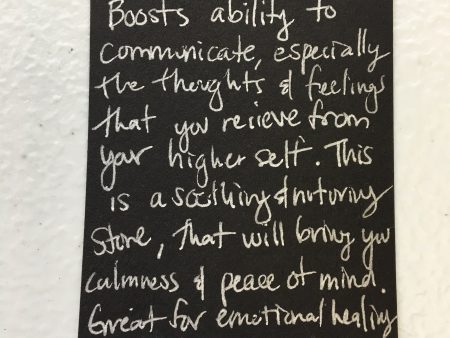 Boosts ability to
communicate, especially
the thoughts & feelings
that you recieve from
your higher self. This
is a soothing & nuturing
stone, that will bring you
calmness & peace of mind.
Great for emotional healing